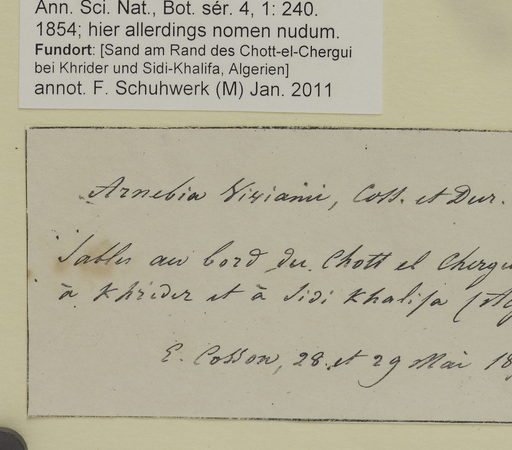 Ann. Sci. Nat., Bot. sér. 4, 1: 240.
1854; hier allerdings nomen nudum.
Fundort: [Sand am Rand des Chott-el-Chergui
bei Khrider und Sidi-Khalifa, Algerien]
annot. F. Schuhwerk (M) Jan. 2011
Arnebia Viviani, Coss. et Dur.
Sables au bord du Chott el Chergu
à Khrider et à Sidi Khalifa (Alg
E. Cosson, 28 et 29 Mai 18